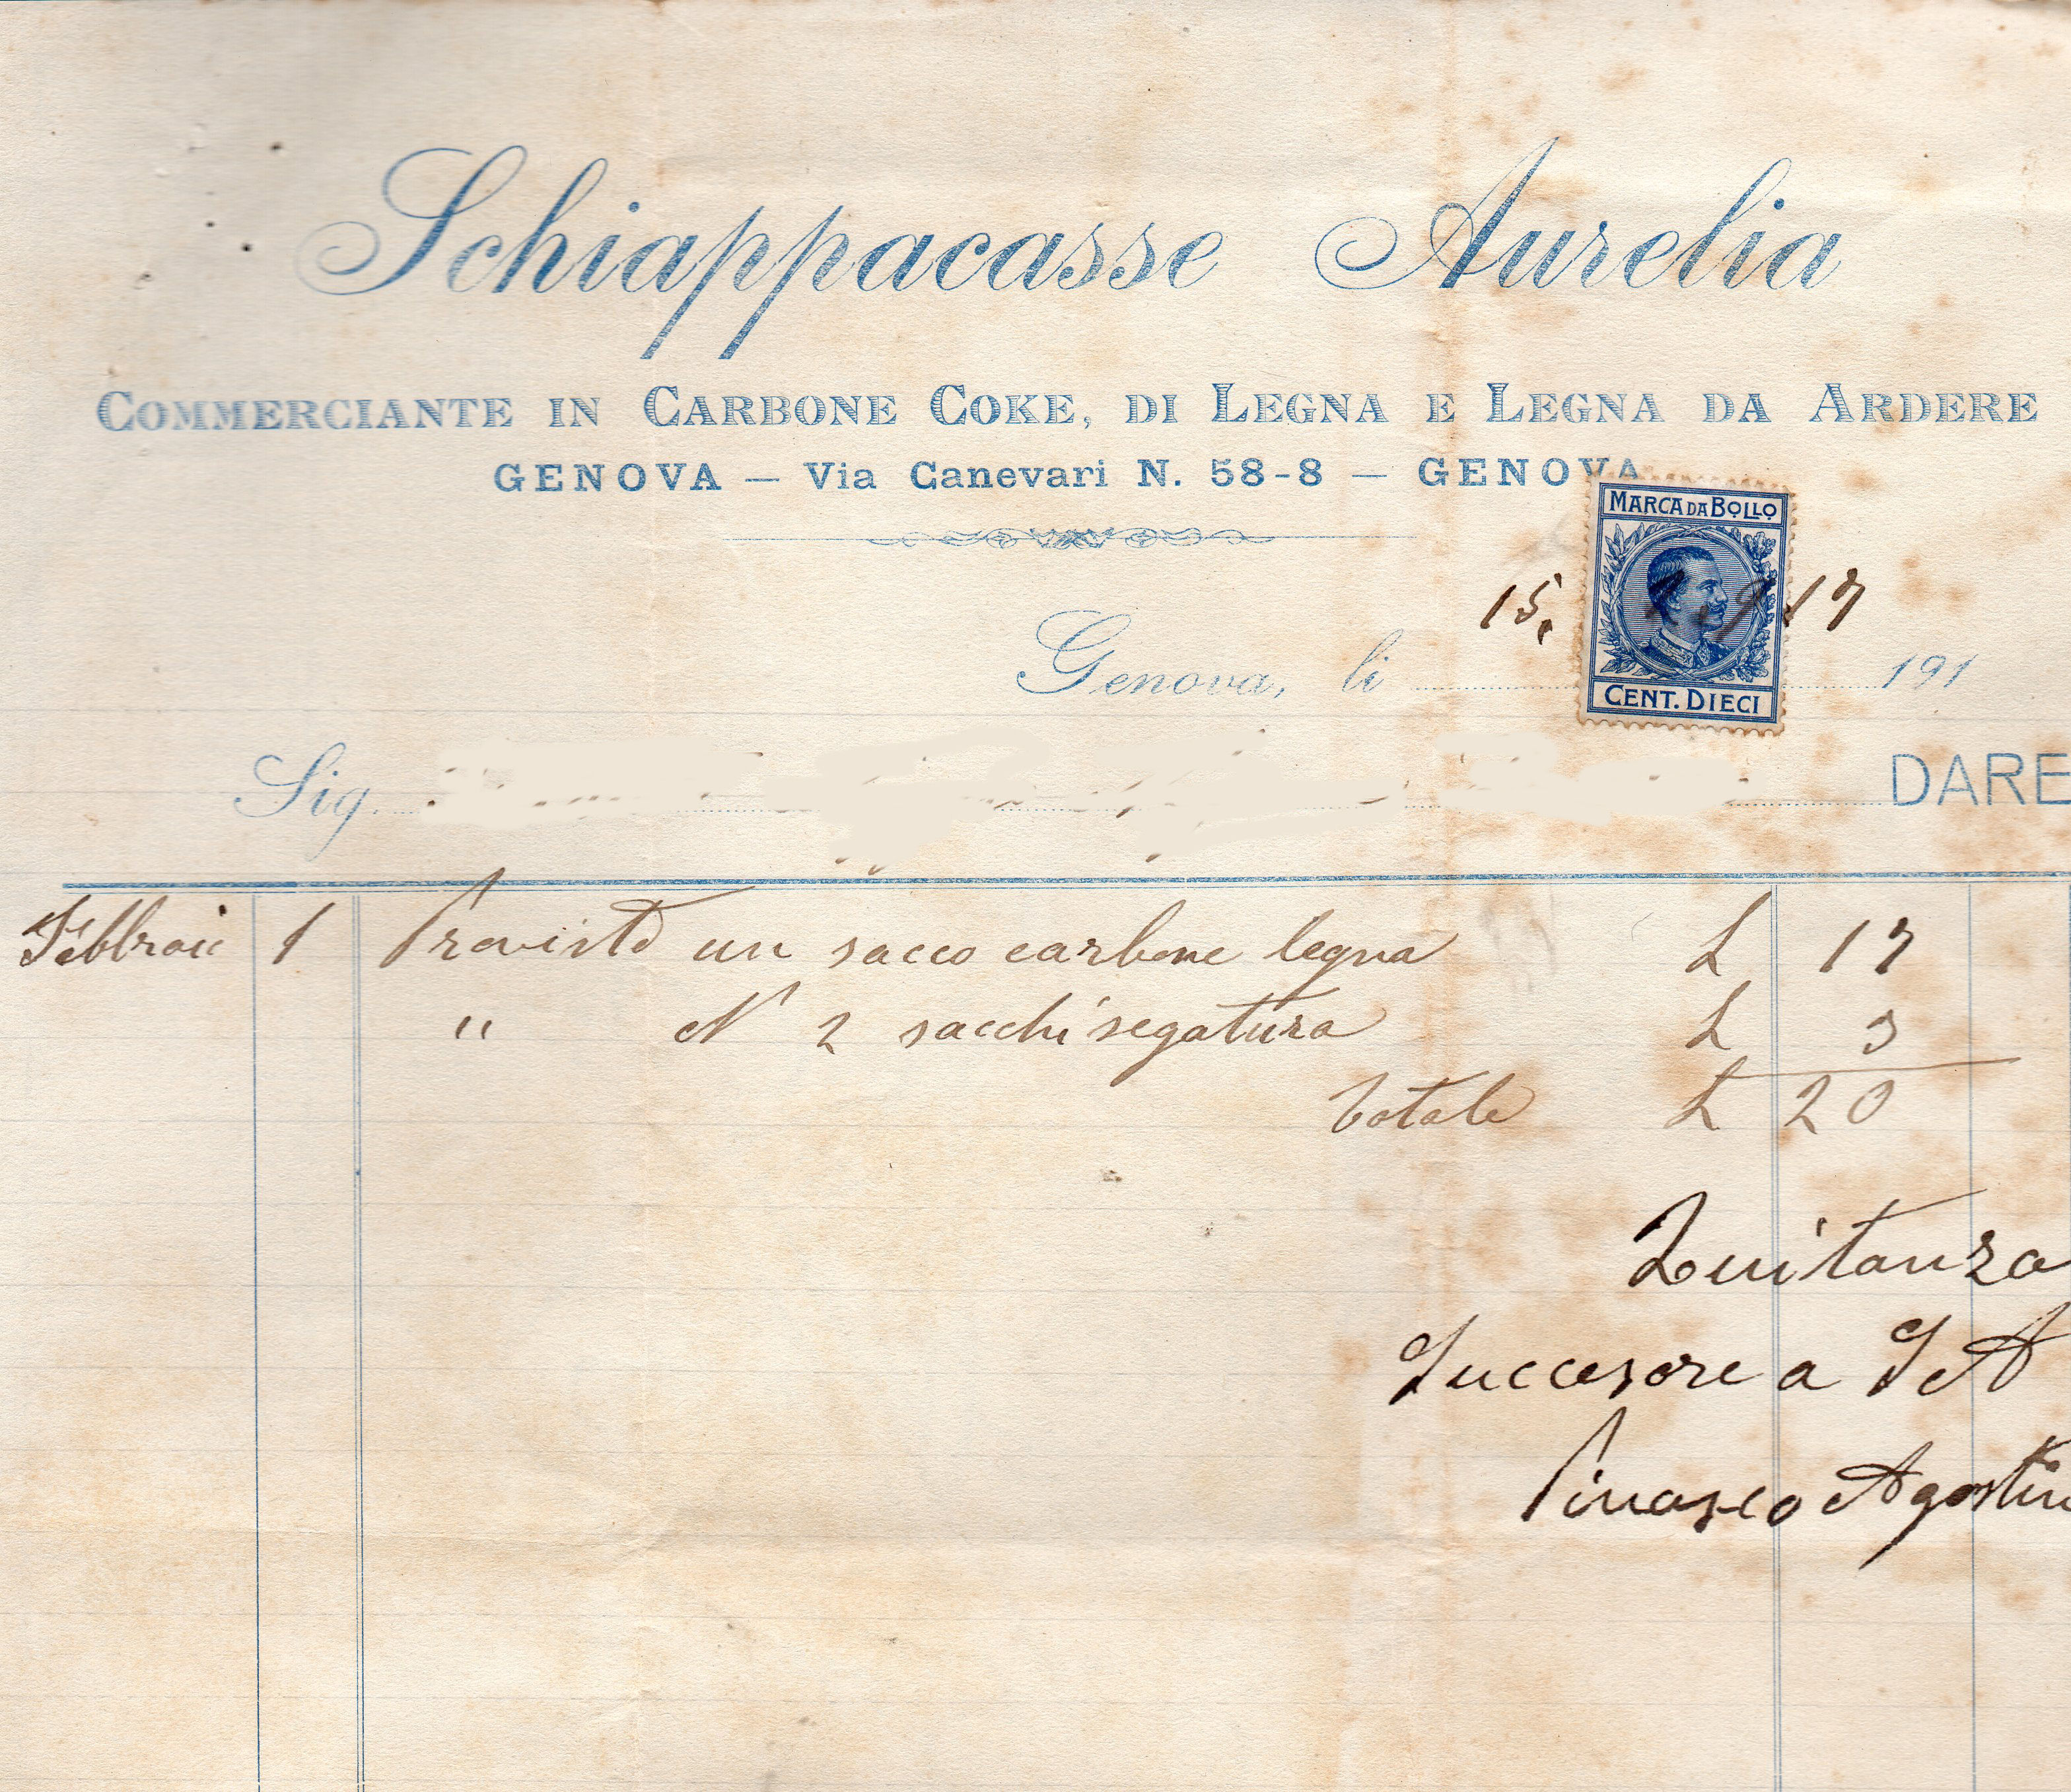 Schiappacasse Aurelia
Commerciante in Carbone Coke, di Legna e Legna da Ardere
GENOVA — Via Canevari N. 58-8 — GENOVA
MARCA DA BOLLO
15. 2. 917
CENT. DIECI
Genova, li 191
Sig. DARE
Febbraio 1 Provisto un sacco carbone legna L 17
" N 2 sacchi segatura L 3
Totale L 20
Quitanza
Succesore a S A
Pinasco Agostin